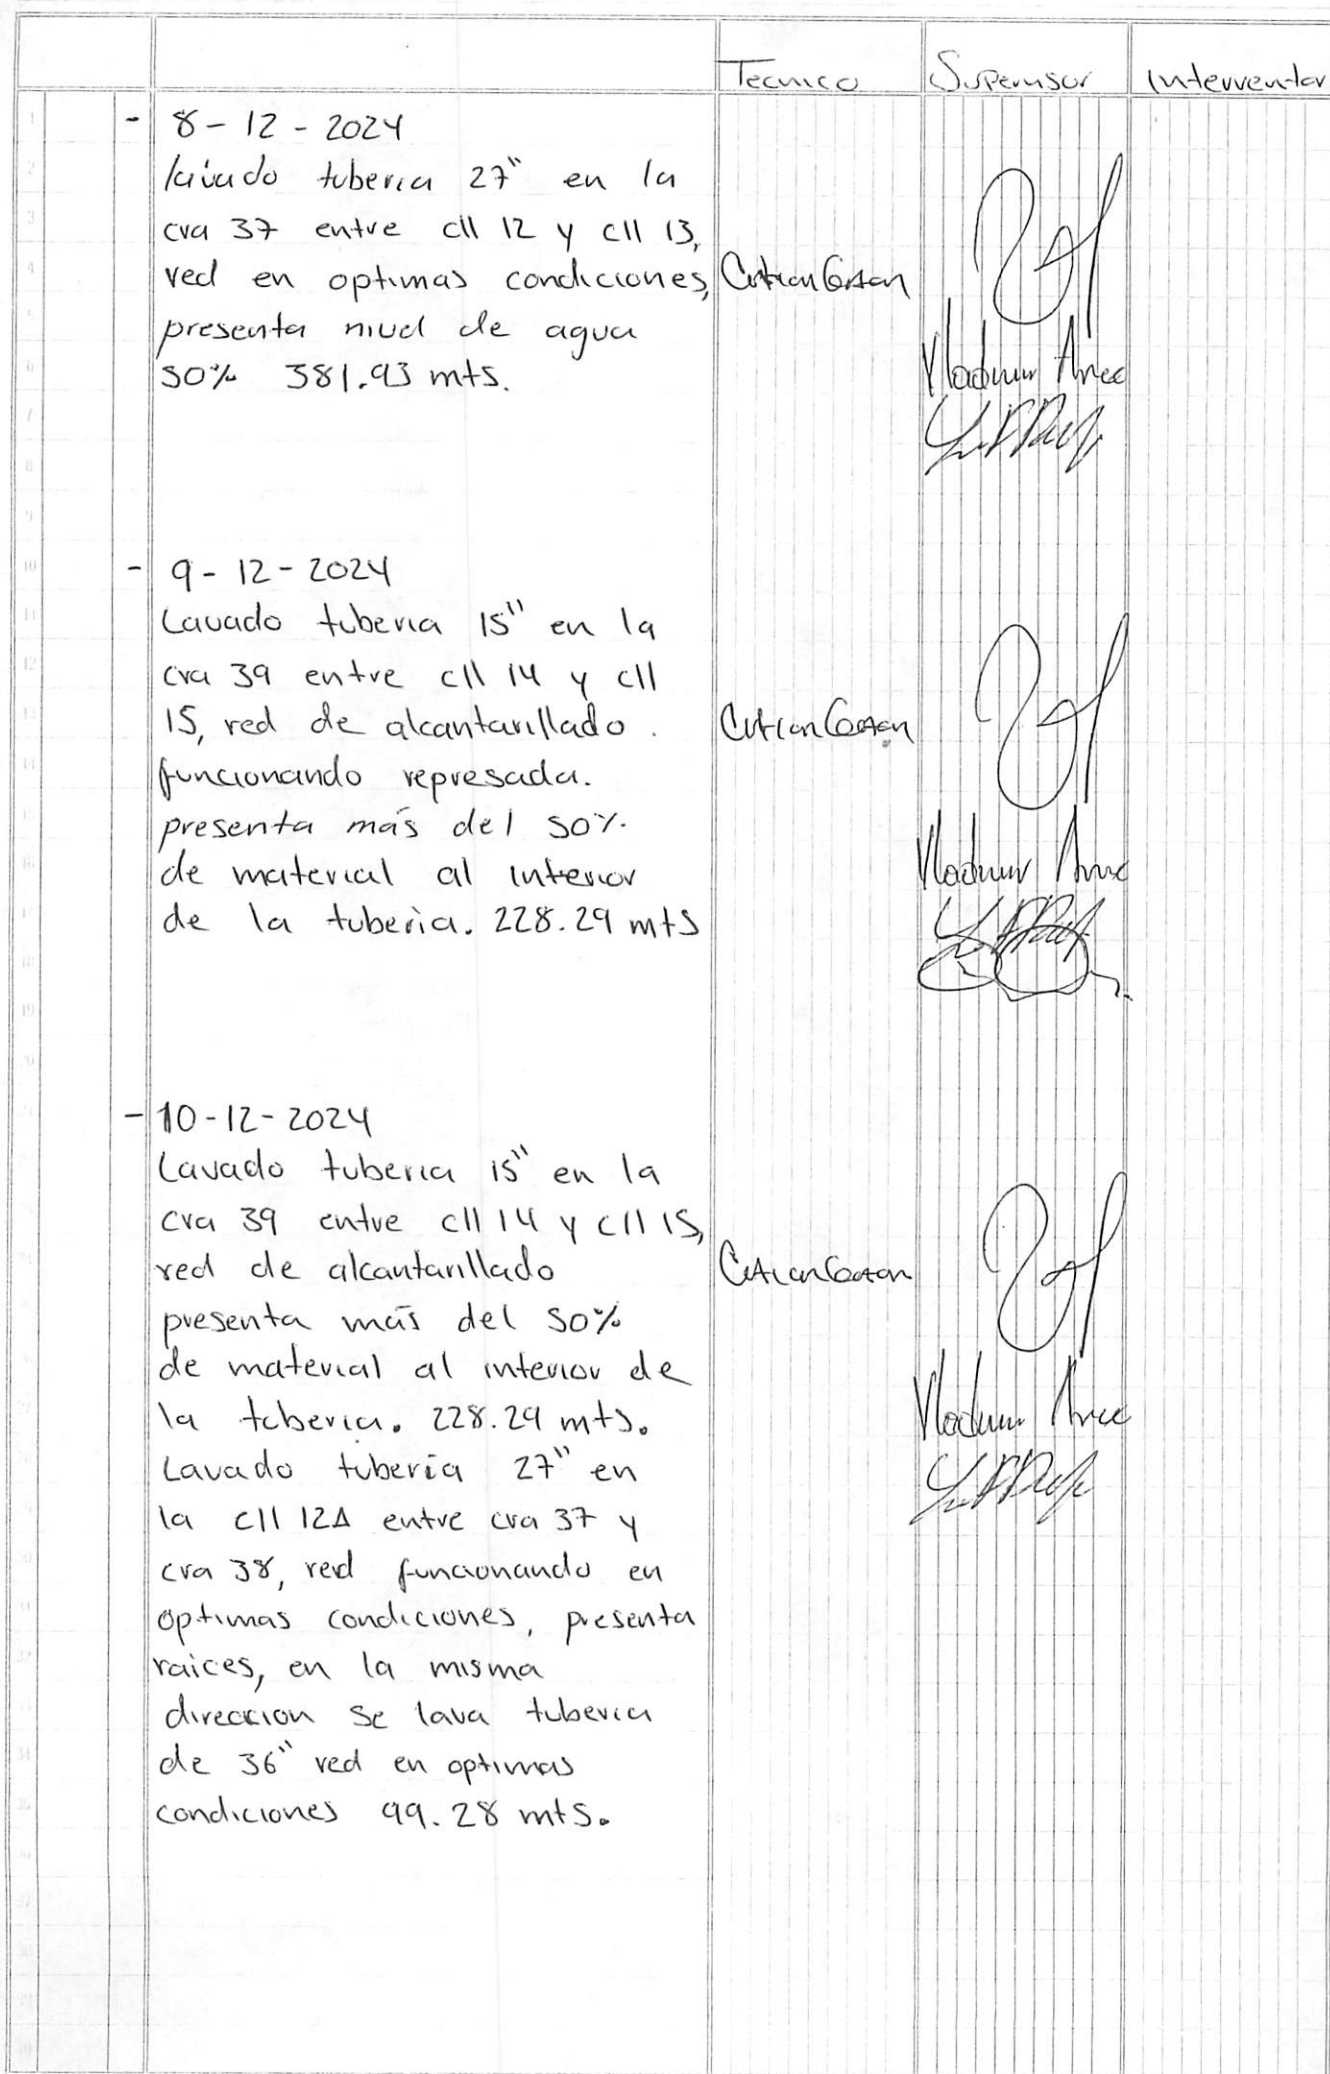 Tecnico Supervisor Interventor
- 8-12-2024
lavado tuberia 27" en la
cra 37 entre cll 12 y cll 13,
red en optimas condiciones,
presenta nivel de agua
50% 381.93 mts.
Vladimir
- 9-12-2024
Lavado tuberia 15" en la
cra 39 entre cll 14 y cll
15, red de alcantarillado.
funcionando represada.
presenta más del 50%
de material al interior
de la tuberia. 228.29 mts
Vladimir
- 10-12-2024
Lavado tuberia 15" en la
cra 39 entre cll 14 y cll 15,
red de alcantarillado
presenta más del 50%
de material al interior de
la tuberia. 228.29 mts.
Lavado tubería 27" en
la cll 12A entre cra 37 y
cra 38, red funcionando en
optimas condiciones, presenta
raices, en la misma
direccion se lava tuberia
de 36" red en optimas
condiciones 99.28 mts.
Vladimir